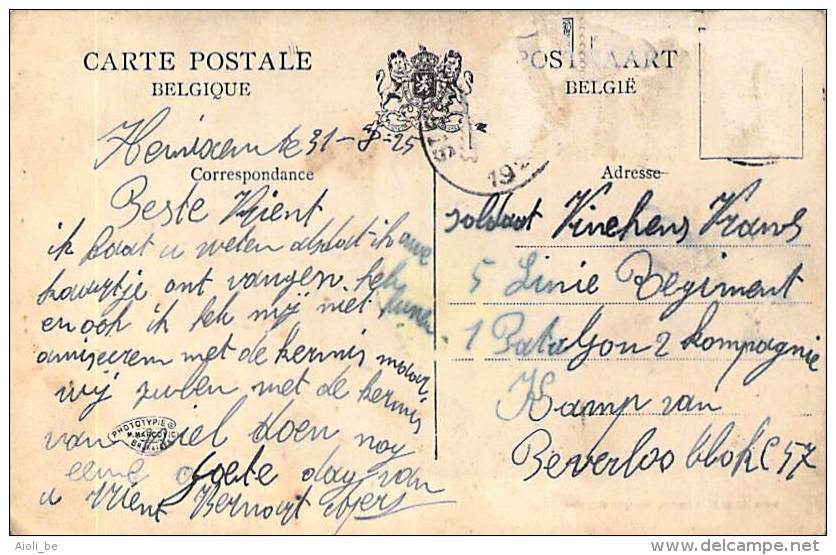 CARTE POSTALE
BELGIQUE
POSTKAART
BELGIË
31-8-25
Correspondance
Adresse
Beste Vrient
ik laat u weten als dat ik
kaartje ont vangen heb
en ook ik heb mij niet kunen
amiseeren met de kermis maar
wij zulen met de kermis
van Niel doen nog
eene goete dag van
u Vrient Bernart
soldaat Vinckens Frans
5 Linie Regiment
1 Bataljon 2 kompagnie
Kamp van
Beverloo blok C 57
PHOTOTYPIE
M. MARCOVICI
Aioli_be
www.delcampe.net